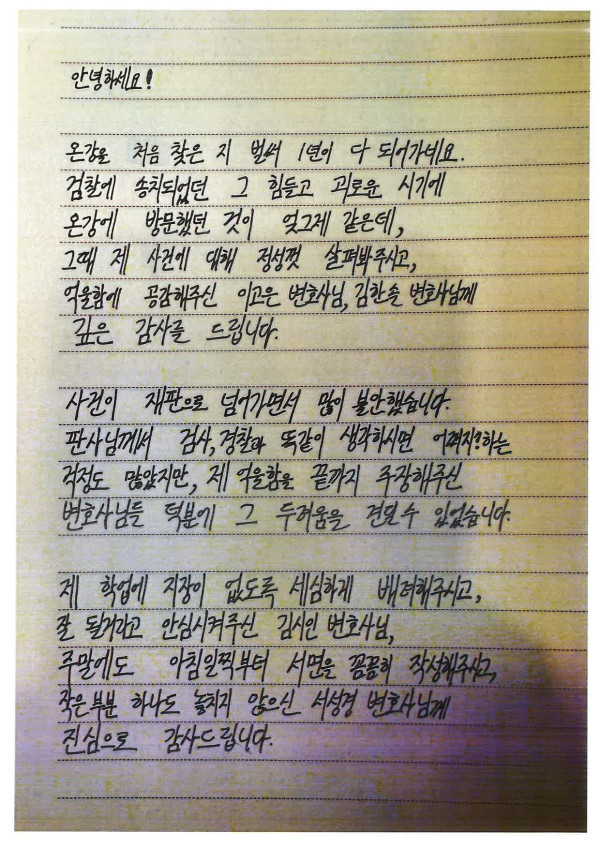 안녕하세요!
온강을 처음 찾은 지 벌써 1년이 다 되어가네요.
검찰에 송치되었던 그 힘들고 괴로운 시기에
온강에 방문했던 것이 엊그제 같은데,
그때 제 사건에 대해 정성껏 살펴봐주시고,
억울함에 공감해주신 이고은 변호사님, 김한솔 변호사님께
깊은 감사를 드립니다.
사건이 재판으로 넘어가면서 많이 불안했습니다.
판사님께서 검사, 경찰과 똑같이 생각하시면 어쩌지?하는
걱정도 많았지만, 제 억울함을 끝까지 주장해주신
변호사님들 덕분에 그 두려움을 견딜 수 있었습니다.
제 학업에 지장이 없도록 세심하게 배려해주시고,
잘 될거라고 안심시켜주신 김시인 변호사님,
주말에도 아침일찍부터 서면을 꼼꼼히 작성해주시고,
작은 부분 하나도 놓치지 않으신 서성경 변호사님께
진심으로 감사드립니다.